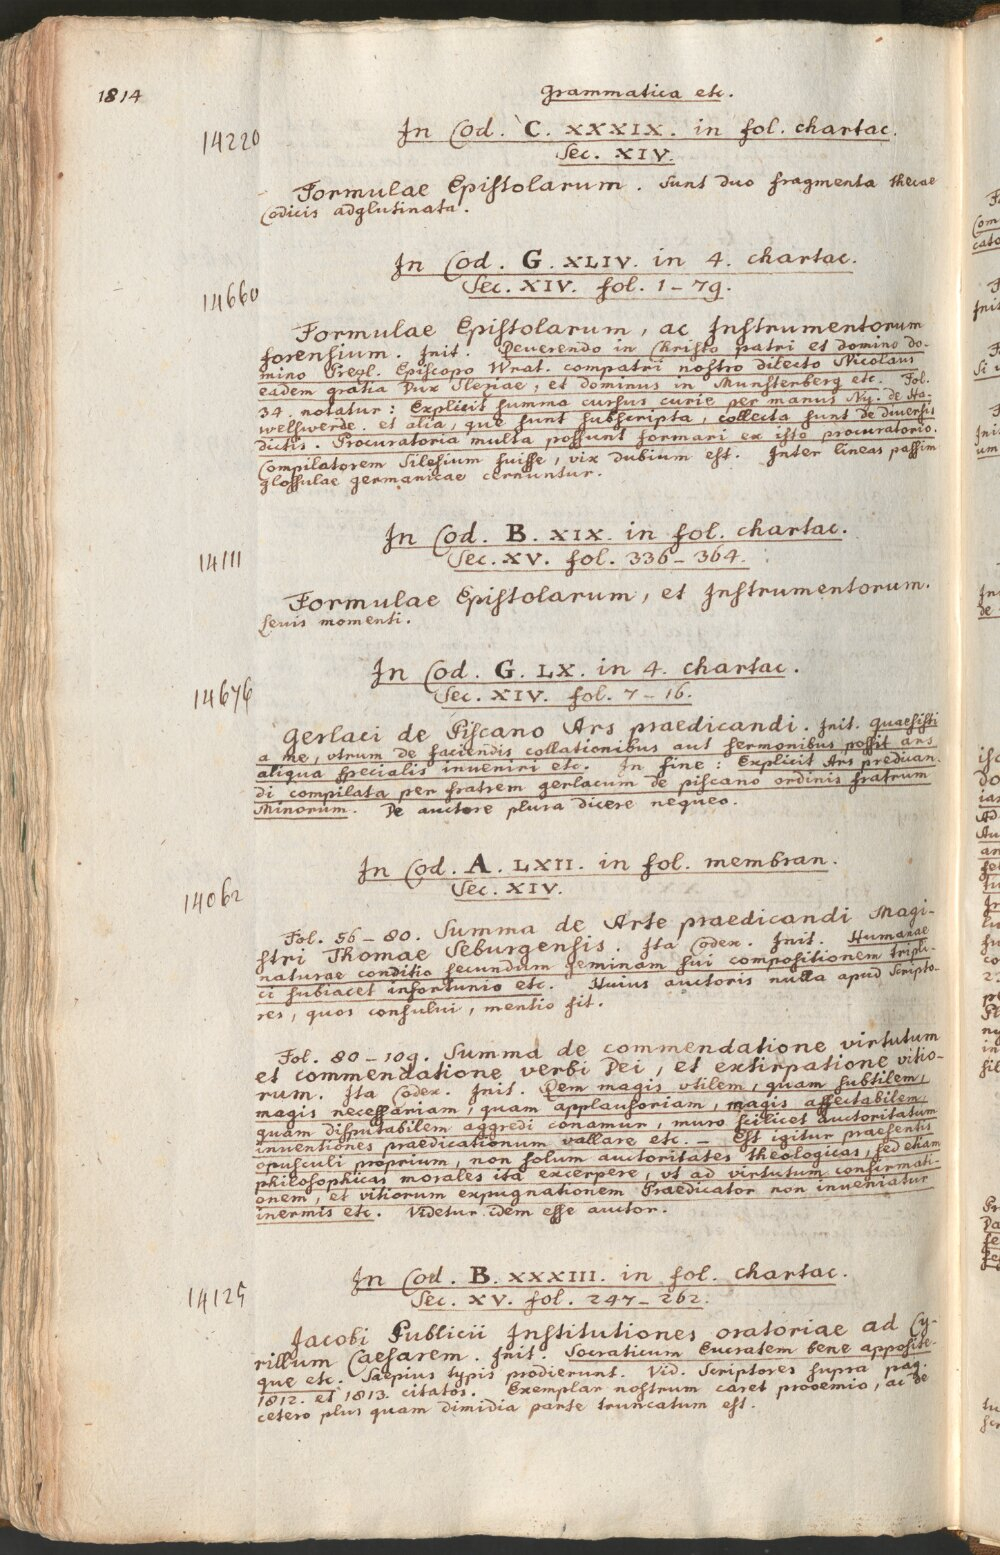 1814
Grammatica etc.
14220
In Cod. C. XXXIX. in fol. chartac.
Sec. XIV.
Formulae Epistolarum. Sunt duo fragmenta thecae
Codicis adglutinata.
In Cod. G. XLIV. in 4. chartac.
14660
Sec. XIV. fol. 1–79.
Formulae Epistolarum, ac Instrumentorum
forensium. Init. Reverendo in Christo patri et domino do-
mino Prezl. Episcopo Wrat. compatri nostro dilecto Nicolaus
eadem gratia Dux Slesiae, et dominus in Munsterberg etc. Fol.
34. notatur: Explicit summa cursus curie per manus Ny. de Ha-
welswerde. et alia, que sunt subscripta, collecta sunt de diversis
dictis. Procuratoria multa possunt formari ex isto procuratorio.
Compilatorem Silesium fuisse, vix dubium est. Inter lineas passim
glossulae germanicae cernuntur.
In Cod. B. XIX. in fol. chartac.
14111
Sec. XV. fol. 336–364.
Formulae Epistolarum, et Instrumentorum.
Levis momenti.
In Cod. G. LX. in 4. chartac.
14676
Sec. XIV. fol. 7–16.
Gerlaci de Piscano Ars praedicandi. Init. Quaesisti
a me, utrum de faciendis collationibus aut sermonibus possit ars
aliqua specialis inveniri etc. In fine: Explicit Ars predican-
di compilata per fratrem Gerlacum de piscano ordinis fratrum
Minorum. De auctore plura dicere nequeo.
In Cod. A. LXII. in fol. membran.
14062
Sec. XIV.
Fol. 56–80. Summa de Arte praedicandi Magi-
stri Thomae Seburgensis. Ita Codex. Init. Humanae
naturae conditio secundum geminam sui compositionem tripli-
ci subiacet infortunio etc. Huius auctoris nulla apud Scripto-
res, quos consului, mentio fit.
Fol. 80–109. Summa de commendatione virtutum
et commendatione verbi Dei, et extirpatione vitio-
rum. Ita Codex. Init. Rem magis vtilem, quam subtilem,
magis necessariam, quam applausoriam, magis affectabilem,
quam disputabilem aggredi conamur, muro scilicet auctoritatum
inventiones praedicationum vallare etc. – Est igitur praesentis
opusculi proprium, non solum auctoritates theologicas, sed etiam
philosophicas morales ita excerpere, vt ad virtutum confirmati-
onem, et vitiorum expugnationem Praedicator non inveniatur
inermis etc. Videtur idem esse auctor.
In Cod. B. XXXIII. in fol. chartac.
14125
Sec. XV. fol. 247–262.
Jacobi Publicii Institutiones oratoriae ad Cy-
rillum Caesarem. Init. Socraticum Eucratem bene apposite-
que etc. Saepius typis prodierunt. Vid. Scriptores supra pag.
1812. et 1813. citatos. Exemplar nostrum caret prooemio, ac de
cetero plus quam dimidia parte truncatum est.